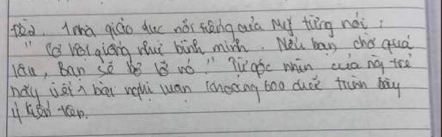 1 nhà giáo dục nổi tiếng của Mỹ từng nói :
" Cơ hội giống như bình minh . Nếu bạn chờ quá
lâu, Bạn sẽ bỏ lỡ nó. " Từ góc nhìn của ng trẻ
hãy viết 1 bài nghị luận khoảng 600 chữ trình bày
ý kiến trên.